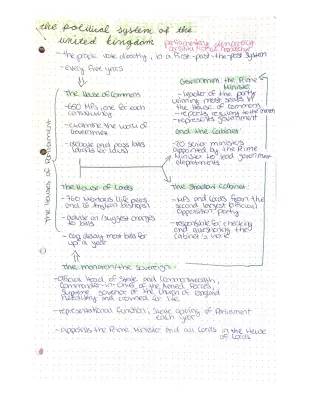 the political system of the
united kingdom
parliamentary democracy
constitutional monarchy
- the people vote directly, in a First-past-the-post system
- every five years
The Houses of Parliament
The House of Commons
- 650 MPs, one for each
constituency
- examine the work of
Government
- debate and pass bills
(drafts for laws)
Government: the Prime
Minister
- leader of the party
winning most seats in
the House of Commons
- reports regularly to the Queen
- represents government
and the Cabinet
- 20 senior ministers
appointed by the Prime
Minister to lead government
departments
The House of Lords
- 760 Members (life peers
and 26 Anglican bishops)
- advise on / suggest changes
to bills
- can delay most bills for
up to a year
The Shadow Cabinet
- MPs and Lords from the
second largest (official)
opposition party
- responsible for checking
and questioning the
cabinet's work
The monarch/the sovereign
- Official Head of State and Commonwealth,
Commander-in-Chief of the Armed Forces,
Supreme Governor of the Church of England
hereditary and crowned for life
- representational function, state opening of Parliament
each year
- appoints the Prime Minister and all Lords in the House
of Lords